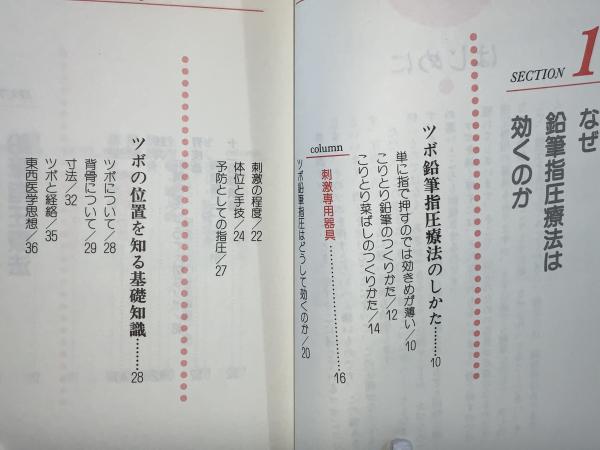 SECTION 1
なぜ
鉛筆指圧療法は
効くのか
ツボ鉛筆指圧療法のしかた………10
単に指で押すのでは効きめが薄い/10
こりとり鉛筆のつくりかた/12
こりとり菜ばしのつくりかた/14
column
刺激専用器具………………16
ツボ鉛筆指圧はどうして効くのか/20
刺激の程度/22
体位と手技/24
予防としての指圧/27
ツボの位置を知る基礎知識………28
ツボについて/28
背骨について/29
寸法/32
ツボと経絡/35
東西医学思想/36
はじめに